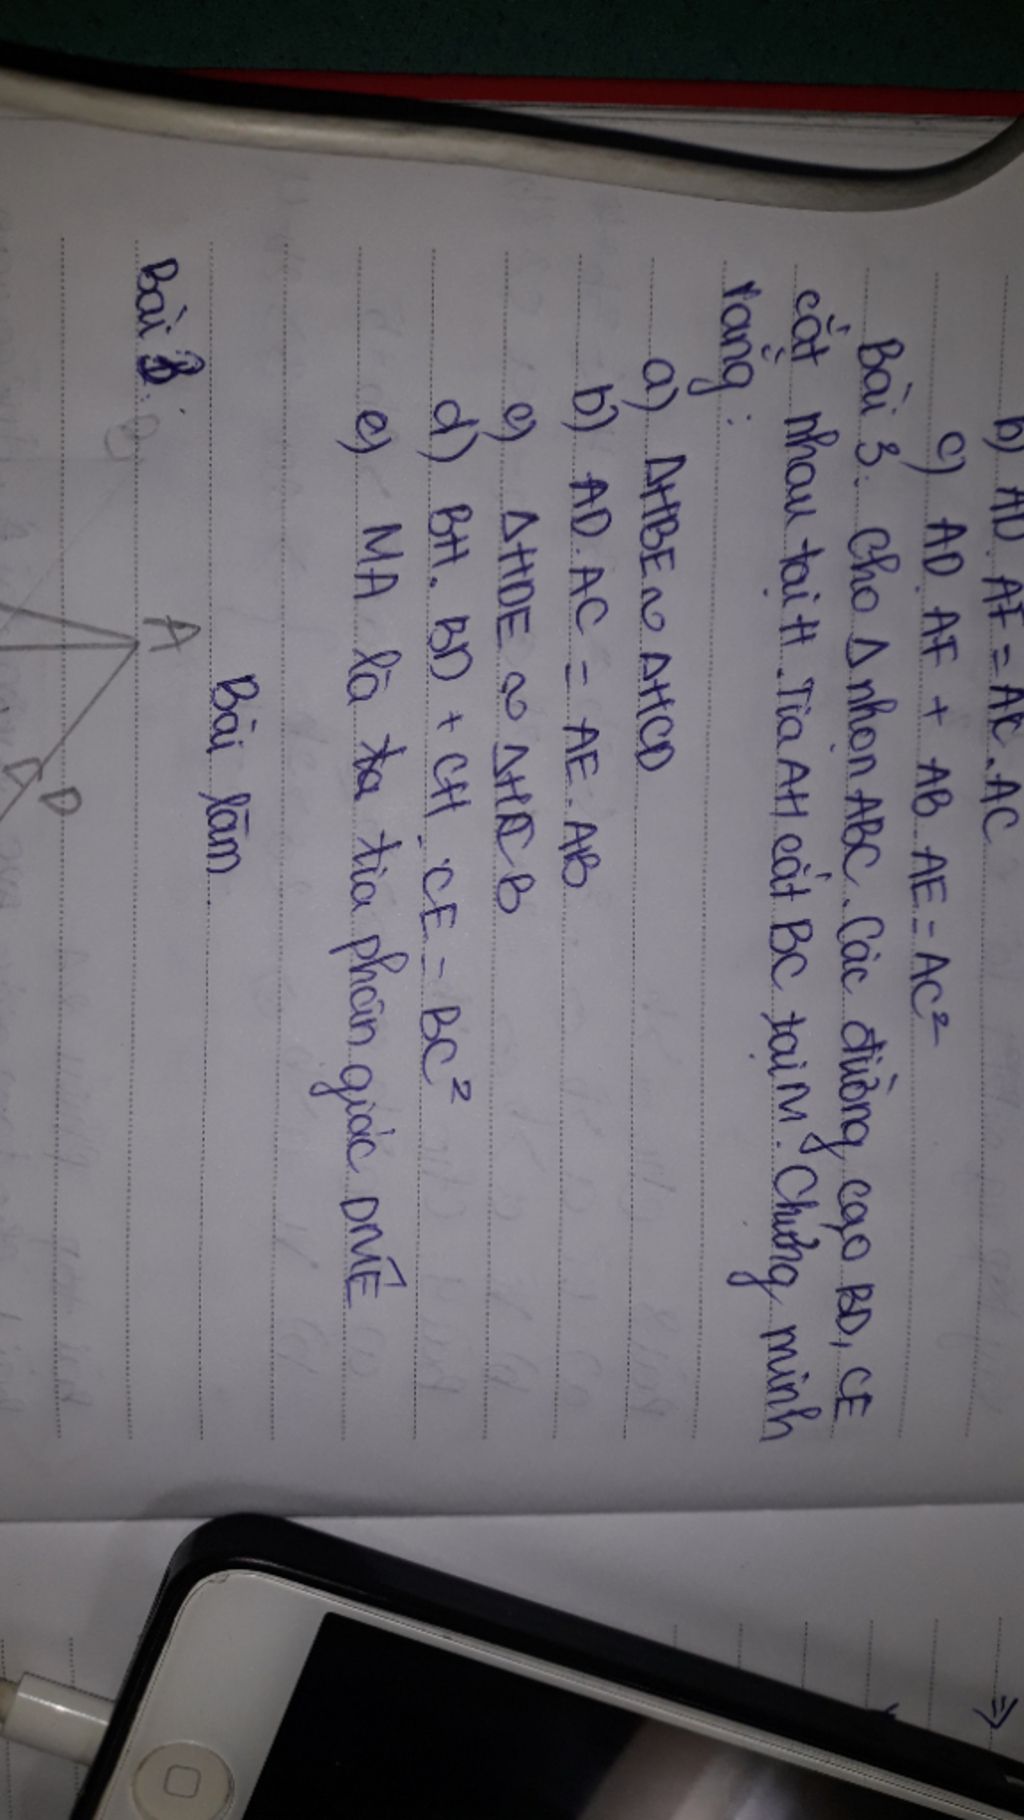 b) AD. AF = AC. AC
c) AD. AF + AB. AE = AC²
Bài 3. Cho Δ nhọn ABC. Các đường cao BD, CE
cắt nhau tại H. Tia AH cắt BC tại M. Chứng minh
rằng:
a) ΔHBE ~ ΔHCD
b) AD. AC = AE. AB
c) ΔHDE ~ ΔHCB
d) BH. BD + CH. CE = BC²
e) MA là ta tia phân giác DME
Bài làm
Bài 3.
A
D